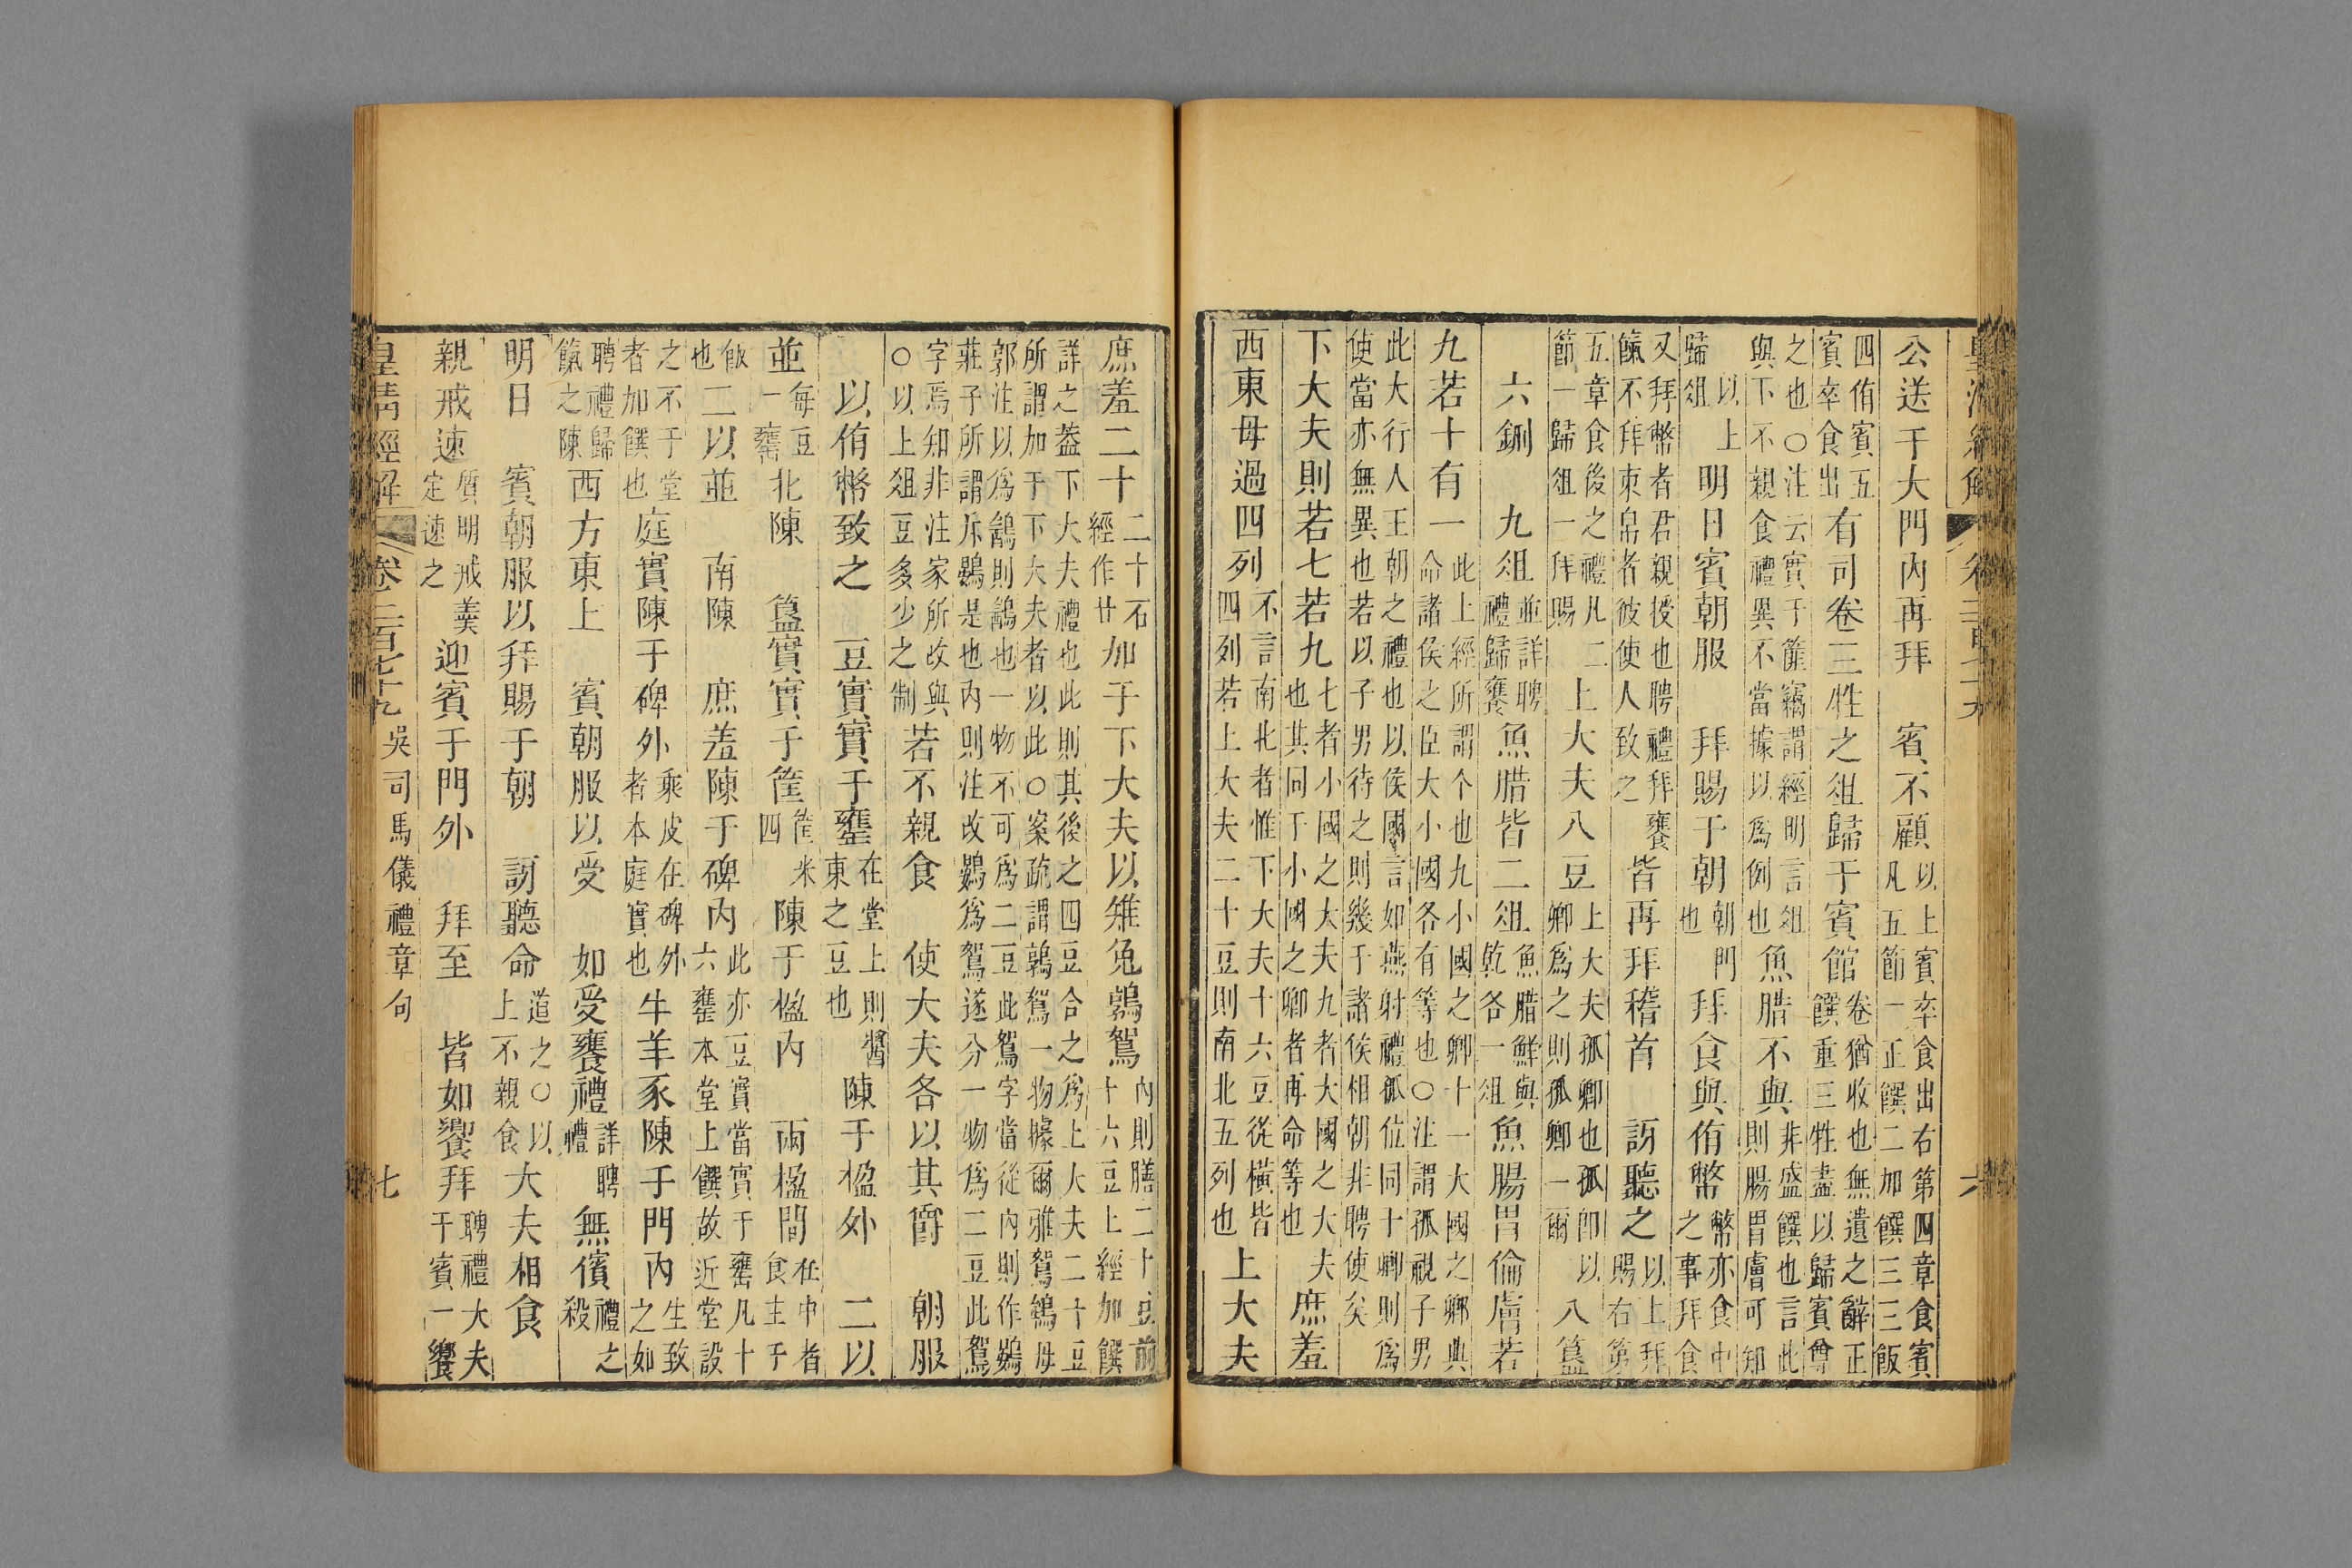 公送于大門內再拜　賓不顧以上賓卒食出右第四章食賓
凡五節一正饌二加饌三三飯
四侑賓五
賓卒食出有司卷三牲之俎歸于賓館卷猶收也無遺之辭正
饌重三牲盡以歸賓尊
之也○注云實于篚竊謂經明言俎
與下不親食禮異不當據以為例也魚腊不與非盛饌也言此
則腸胃膚可知
以上
歸俎明日賓朝服　拜賜于朝朝門
也拜食與侑幣幣亦食中
之事拜食
又拜幣者君親授也聘禮拜饔
餼不拜束帛者彼使人致之皆再拜稽首　訝聽之以上拜
賜右第
五章食後之禮凡二
節一歸俎一拜賜上大夫八豆上大夫孤卿也孤卽以
卿為之則孤卿一爾八簋
六鉶　九俎並詳聘
禮歸饔魚腊皆二俎魚腊鮮與
乾各一俎魚腸胃倫膚若
九若十有一此上經所謂个也九小國之卿十一大國之卿與
命諸侯之臣大小國各有等也○注謂孤視子男
此大行人王朝之禮也以侯國言如燕射禮孤位同于卿則為
使當亦無異也若以子男待之則幾于諸侯相朝非聘使矣
下大夫則若七若九七者小國之大夫九者大國之大夫
也其同于小國之卿者再命等也庶羞
西東毋過四列不言南北者惟下大夫十六豆從橫皆
四列若上大夫二十豆則南北五列也上大夫
庶羞二十二十石
經作廿加于下大夫以雉兔鶉鴽內則膳二十豆前
十六豆上經加饌
詳之葢下大夫禮也此則其後之四豆合之為上大夫二十豆
所謂加于下大夫者以此○案疏謂鶉鴽一物據爾雅鴽鴾母
郭注以為䳺則䳺也一物不可為二豆此鴽字當從內則作鷃
莊子所謂斥鷃是也內則注改鷃為鴽遂分一物為二豆此鴽
字焉知非注家所改與
○以上俎豆多少之制若不親食　使大夫各以其爵　朝服
以侑幣致之　豆實實于罋在堂上則醬
東之豆也陳于楹外　二以
並每豆
一罋北陳　簋實實于筐筐米
四陳于楹內　兩楹間在中者
食主于
飯
也二以並　南陳　庶羞陳于碑內此亦豆實當實于罋凡十
六罋本堂上饌故近堂設
之不于堂
者加饌也庭實陳于碑外乘皮在碑外
者本庭實也牛羊豕陳于門內生致
之如
聘禮歸
餼之陳西方東上　賓朝服以受　如受饔禮詳聘
禮無儐禮之
殺
明日　賓朝服以拜賜于朝　訝聽命道之○以
上不親食大夫相食
親戒速質明戒羹
定速之迎賓于門外　拜至　皆如饗拜聘禮大夫
于賓一饗
皇清經解　卷二百七十九　吳司馬儀禮章句　七